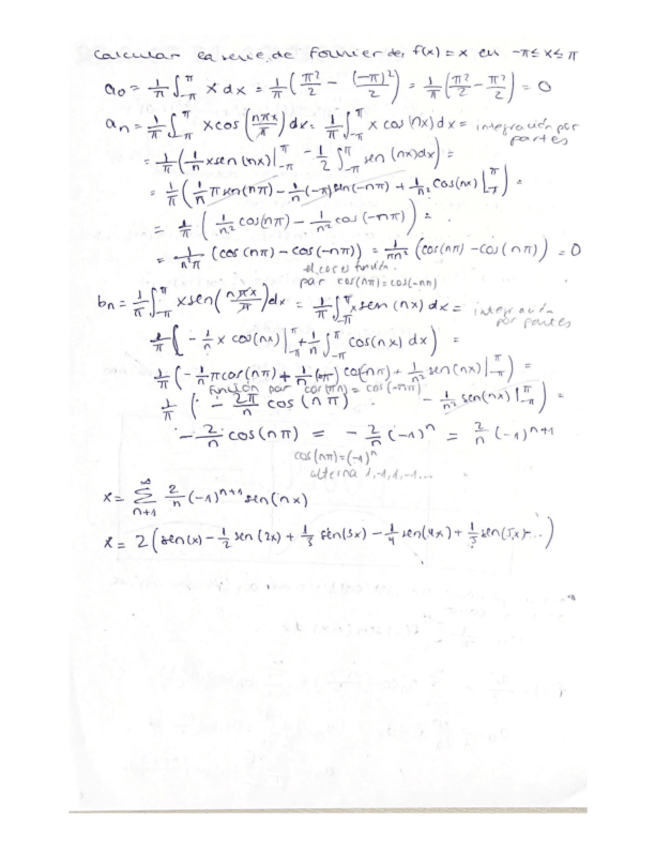 Calcular la serie de Fourier de f(x) = x en -π ≤ x ≤ π
a₀ = 1/π ∫_{-π}^{π} x dx = 1/π (π²/2 - (-π)²/2) = 1/π (π²/2 - π²/2) = 0
aₙ = 1/π ∫_{-π}^{π} x cos(nπx/π) dx = 1/π ∫_{-π}^{π} x cos(nx) dx = integración por partes
= 1/π (1/n x sen(nx)|_{-π}^{π} - 1/2 ∫_{-π}^{π} sen(nx)dx) =
= 1/π (1/n π sen(nπ) - 1/n (-π) sen(-nπ) + 1/n² cos(nx)|_{-π}^{π}) =
= 1/π (1/n² cos(nπ) - 1/n² cos(-nπ)) =
= 1/n²π (cos(nπ) - cos(-nπ)) = 1/πn² (cos(nπ) - cos(nπ)) = 0
el cos es función
par cos(nπ) = cos(-nπ)
bₙ = 1/π ∫_{-π}^{π} x sen(nπx/π) dx = 1/π ∫_{-π}^{π} x sen(nx) dx = integración por partes
1/π (-1/n x cos(nx)|_{-π}^{π} + 1/n ∫_{-π}^{π} cos(nx) dx) =
1/π (-1/n π cos(nπ) + 1/n (-π) cos(nπ) + 1/n² sen(nx)|_{-π}^{π}) =
función par cos(πn) = cos(-πn)
1/π (-2π/n cos(nπ) - 1/n² sen(nx)|_{-π}^{π}) =
- 2/n cos(nπ) = - 2/n (-1)ⁿ = 2/n (-1)ⁿ⁺¹
cos(nπ) = (-1)ⁿ
alterna 1, -1, 1, -1...
x = ∑_{n+1}^{∞} 2/n (-1)ⁿ⁺¹ sen(nx)
x = 2(sen(x) - 1/2 sen(2x) + 1/3 sen(3x) - 1/4 sen(4x) + 1/5 sen(5x)-...)